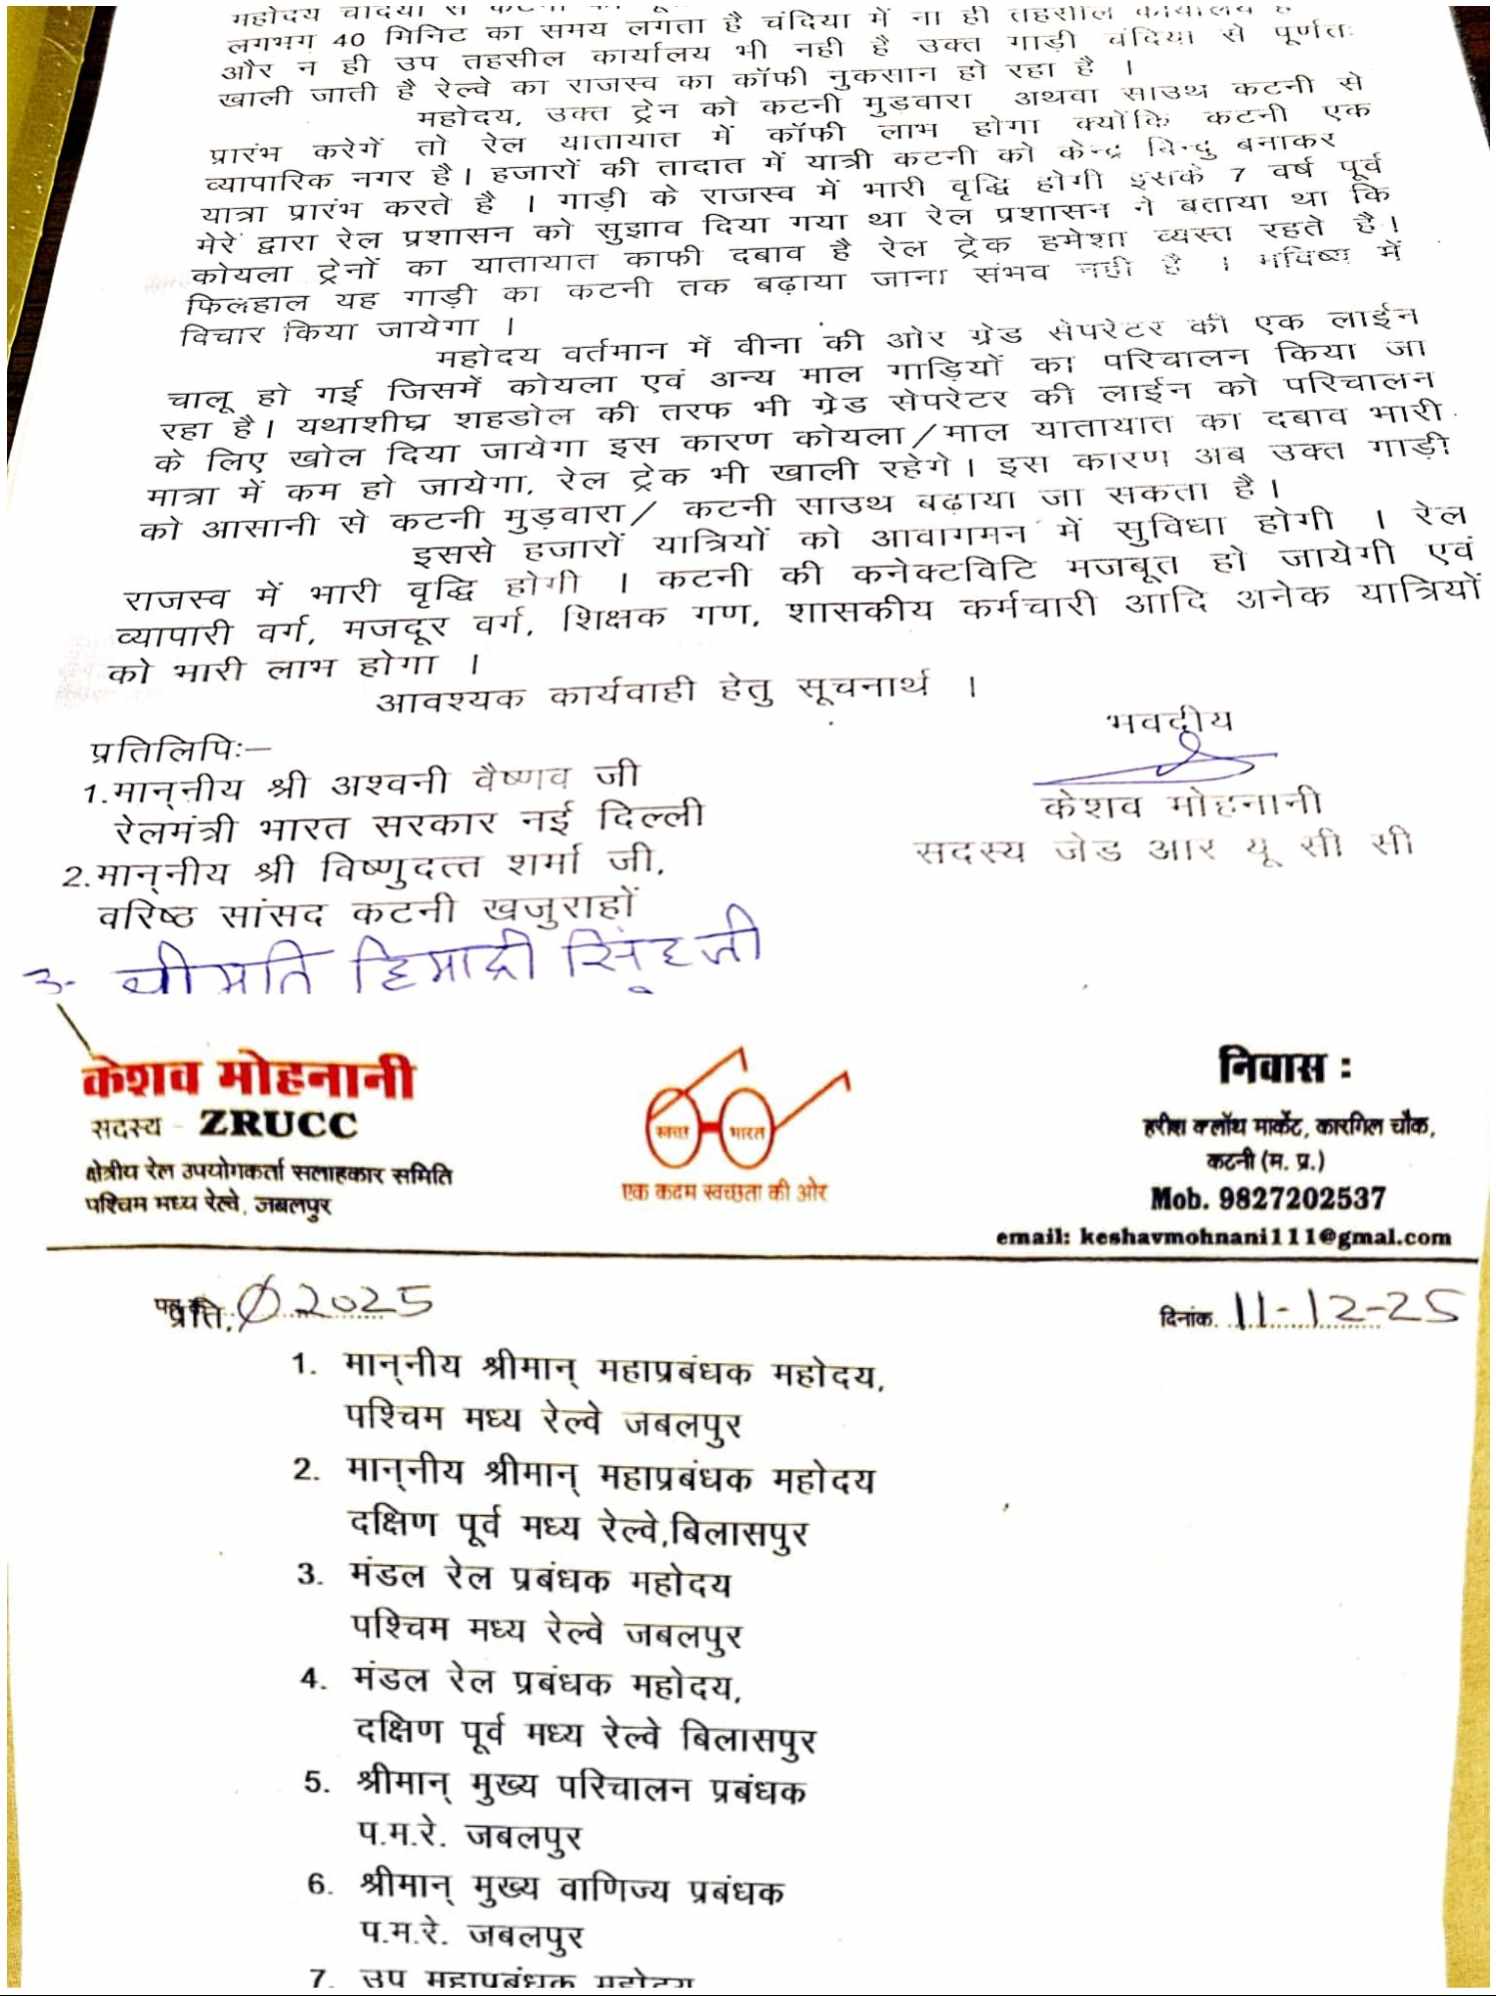 महोदय चंदिया से कटनी
लगभग 40 मिनिट का समय लगता है चंदिया में ना ही तहसील कार्यालय है
और न ही उप तहसील कार्यालय भी नही है उक्त गाड़ी चंदिया से पूर्णतः
खाली जाती है रेल्वे का राजस्व का कॉफी नुकसान हो रहा है ।
महोदय, उक्त ट्रेन को कटनी मुडवारा अथवा साउथ कटनी से
प्रारंभ करेगें तो रेल यातायात में कॉफी लाभ होगा क्योंकि कटनी एक
व्यापारिक नगर है। हजारों की तादात में यात्री कटनी को केन्द्र बिन्दु बनाकर
यात्रा प्रारंभ करते है । गाड़ी के राजस्व में भारी वृद्धि होगी इसके 7 वर्ष पूर्व
मेरें द्वारा रेल प्रशासन को सुझाव दिया गया था रेल प्रशासन ने बताया था कि
कोयला ट्रेनों का यातायात काफी दबाव है रेल ट्रेक हमेशा व्यस्त रहते है।
फिलहाल यह गाड़ी का कटनी तक बढ़ाया जाना संभव नही है । भविष्य में
विचार किया जायेगा ।
महोदय वर्तमान में वीना की ओर ग्रेड सेपरेटर की एक लाईन
चालू हो गई जिसमें कोयला एवं अन्य माल गाड़ियों का परिचालन किया जा
रहा है। यथाशीघ्र शहडोल की तरफ भी ग्रेड सेपरेटर की लाईन को परिचालन
के लिए खोल दिया जायेगा इस कारण कोयला/माल यातायात का दबाव भारी
मात्रा में कम हो जायेगा, रेल ट्रेक भी खाली रहेगे। इस कारण अब उक्त गाड़ी
को आसानी से कटनी मुड़वारा/ कटनी साउथ बढ़ाया जा सकता है।
इससे हजारों यात्रियों को आवागमन में सुविधा होगी । रेल
राजस्व में भारी वृद्धि होगी । कटनी की कनेक्टविटि मजबूत हो जायेगी एवं
व्यापारी वर्ग, मजदूर वर्ग, शिक्षक गण, शासकीय कर्मचारी आदि अनेक यात्रियों
को भारी लाभ होगा ।
आवश्यक कार्यवाही हेतु सूचनार्थ ।
भवदीय
प्रतिलिपिः–
1.मान्नीय श्री अश्वनी वैष्णव जी
रेलमंत्री भारत सरकार नई दिल्ली
केशव मोहनानी
सदस्य जेड आर यू सी सी
2.मान्नीय श्री विष्णुदत्त शर्मा जी,
वरिष्ठ सांसद कटनी खजुराहों
3- श्रीमति हिमाद्री सिंह जी
केशव मोहनानी
सदस्य - ZRUCC
क्षेत्रीय रेल उपयोगकर्ता सलाहकार समिति
पश्चिम मध्य रेल्वे, जबलपुर
स्वच्छ भारत
एक कदम स्वच्छता की ओर
निवास :
हरीश क्लॉथ मार्केट, कारगिल चौक,
कटनी (म. प्र.)
Mob. 9827202537
email: keshavmohnani111@gmal.com
प्रति, 2025
दिनांक. 11-12-25
1. मान्नीय श्रीमान् महाप्रबंधक महोदय,
पश्चिम मध्य रेल्वे जबलपुर
2. मान्नीय श्रीमान् महाप्रबंधक महोदय
दक्षिण पूर्व मध्य रेल्वे,बिलासपुर
3. मंडल रेल प्रबंधक महोदय
पश्चिम मध्य रेल्वे जबलपुर
4. मंडल रेल प्रबंधक महोदय,
दक्षिण पूर्व मध्य रेल्वे बिलासपुर
5. श्रीमान् मुख्य परिचालन प्रबंधक
प.म.रे. जबलपुर
6. श्रीमान् मुख्य वाणिज्य प्रबंधक
प.म.रे. जबलपुर
7. उप महाप्रबंधक महोदय